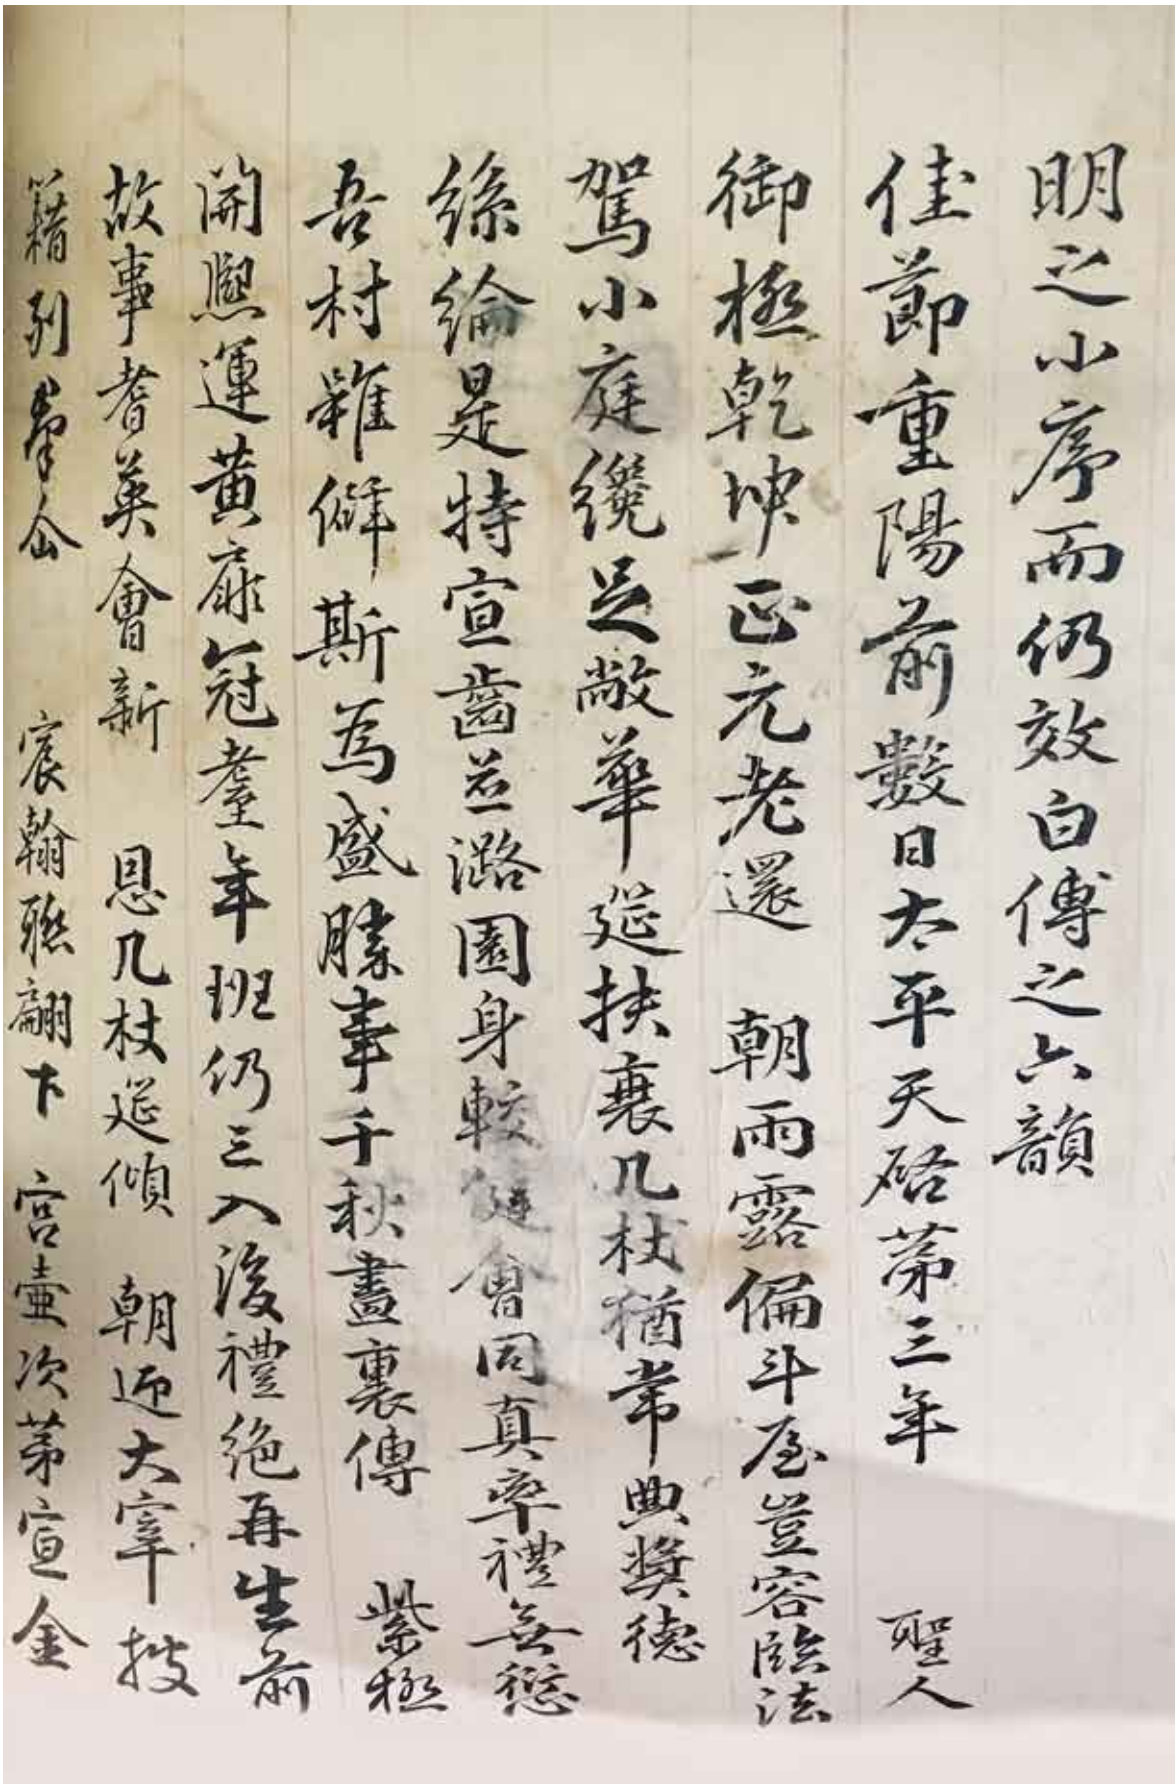 明之小序而仍效白傅之六韻
佳節重陽前數日太平天啓第三年 聖人
御極乾坤正元老還 朝雨露偏斗屋豈容臨法
駕小庭纔足敞華筵扶衰几杖猶常典獎德
絲綸是特宣齒並潞園身較健會同真率禮無愆
吾村雖僻斯為盛勝事千秋畫裏傳 紫極
開熙運黃扉冠耋年班仍三入後禮絕再生前
故事耆英會新 恩几杖筵傾 朝迎大宰搜
籍列羣仚 宸翰聯翩下 宮壺次第宣金